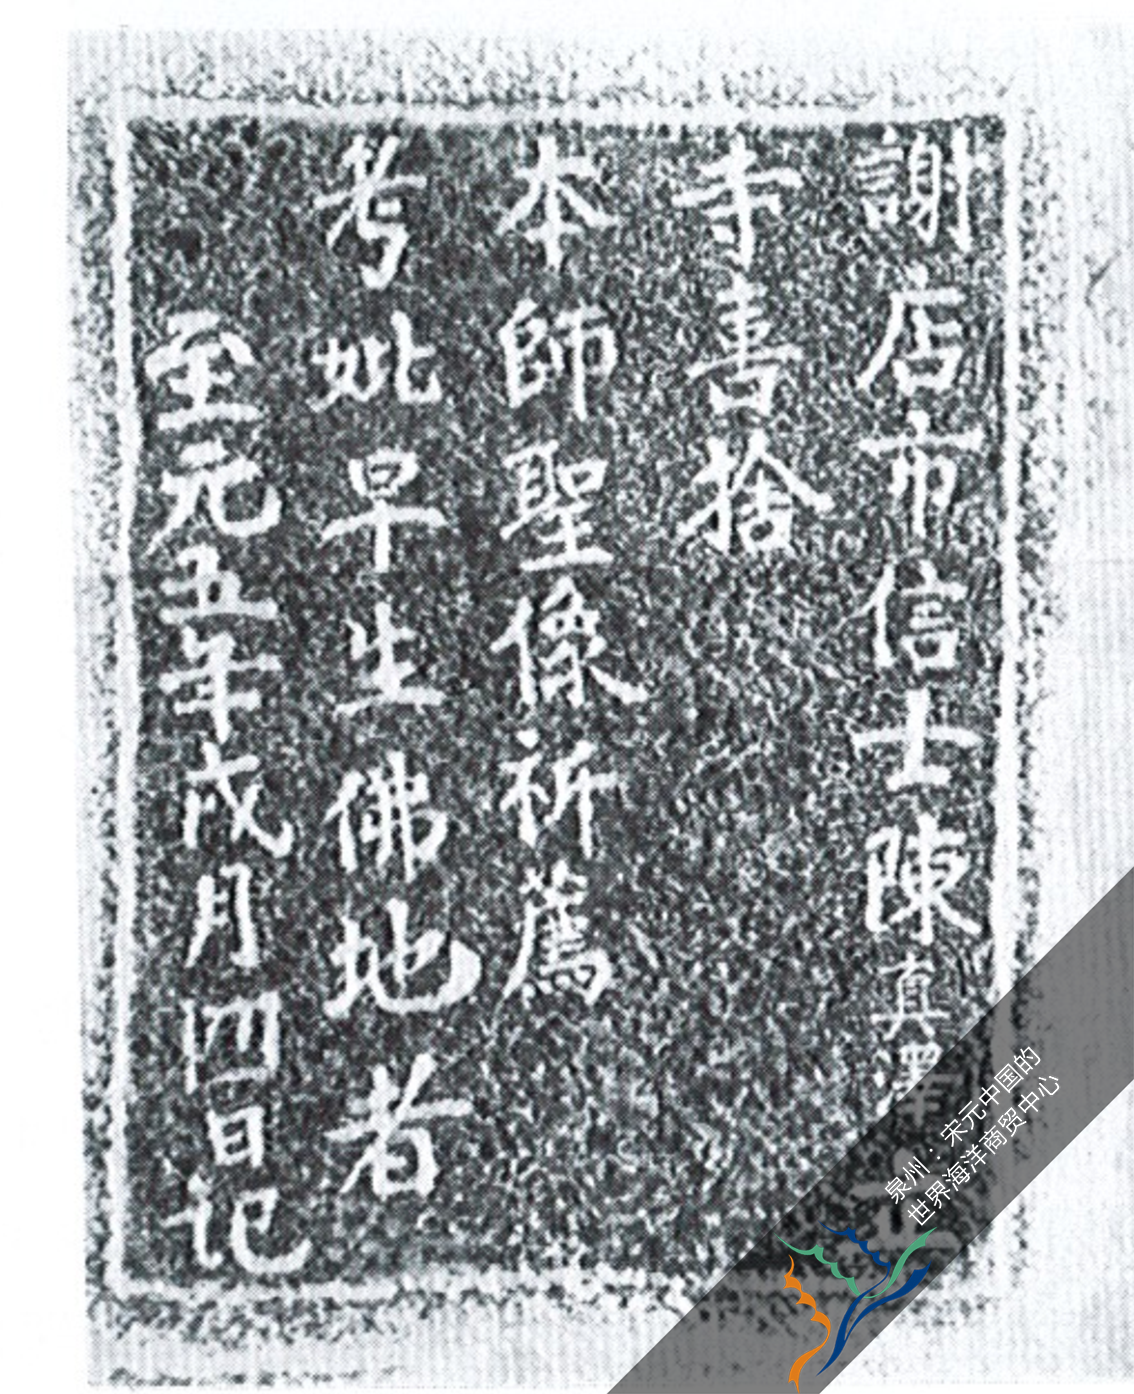 謝店市信士陳真澤立
寺喜捨
本師聖像祈薦
考妣早生佛地者
至元五年戌月四日記
泉州：宋元中国的
世界海洋商贸中心